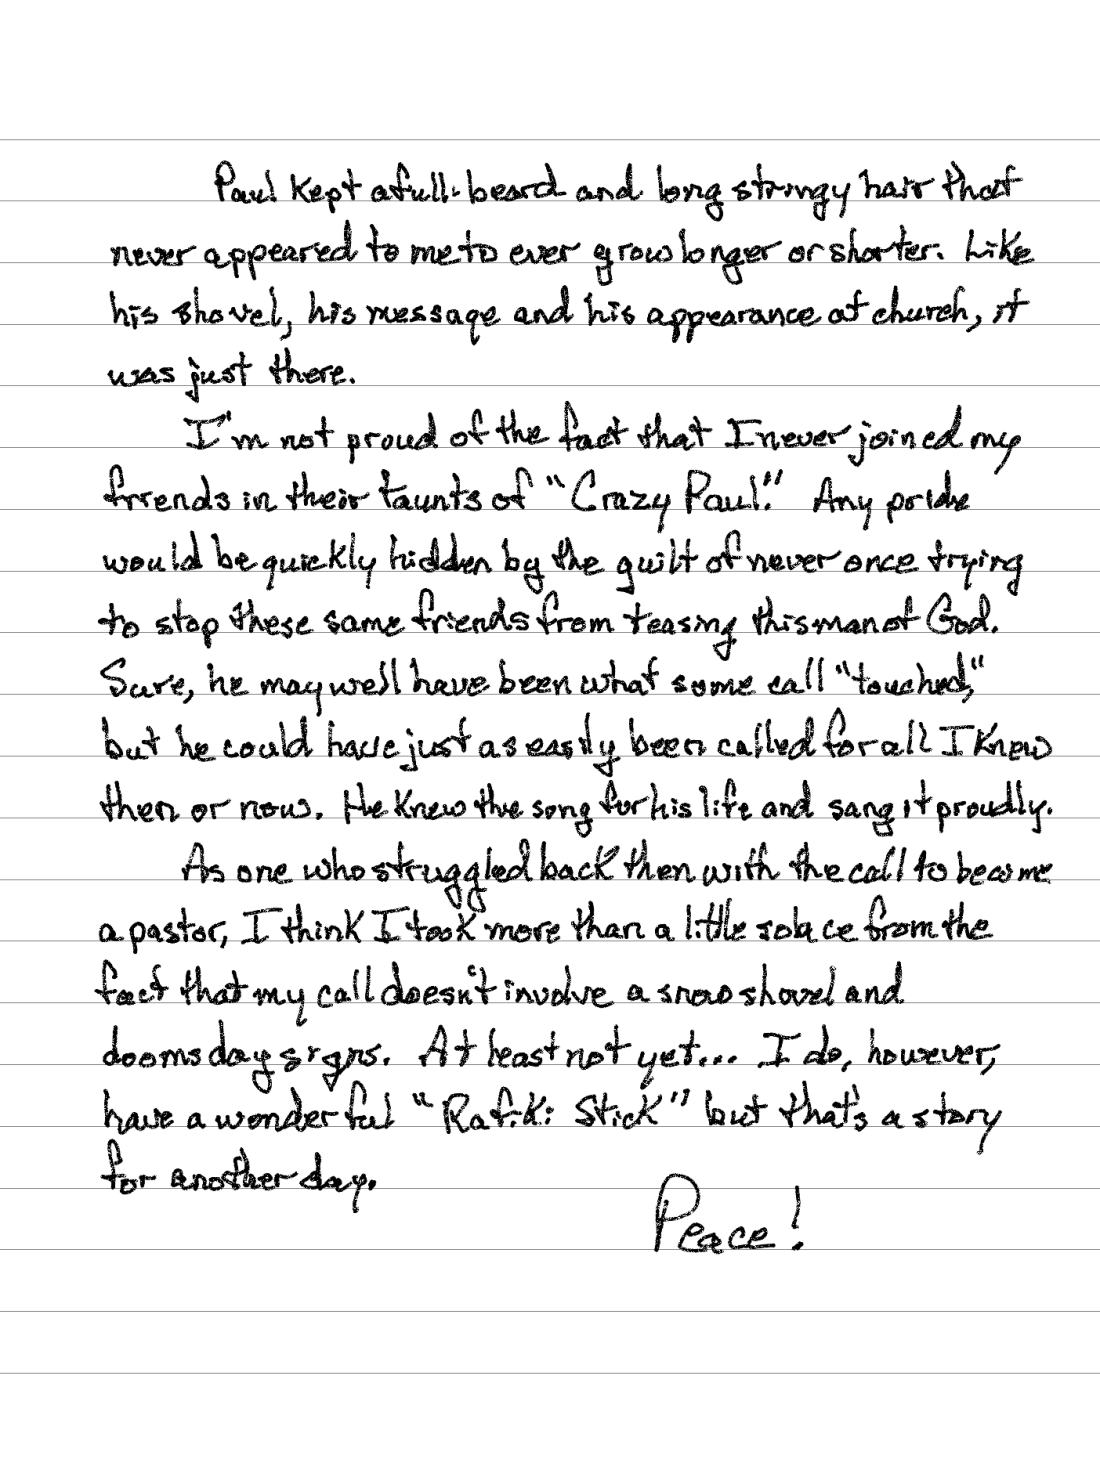 Paul kept a full beard and long stringy hair that
never appeared to me to ever grow longer or shorter. Like
his shovel, his message and his appearance at church, it
was just there.
I'm not proud of the fact that I never joined my
friends in their taunts of "Crazy Paul." Any pride
would be quickly hidden by the guilt of never once trying
to stop these same friends from teasing this man of God.
Sure, he may well have been what some call "touched,"
but he could have just as easily been called for all I knew
then or now. He knew the song for his life and sang it proudly.
As one who struggled back then with the call to become
a pastor, I think I took more than a little solace from the
fact that my call doesn't involve a snow shovel and
doomsday signs. At least not yet... I do, however,
have a wonderful "Rafiki Stick" but that's a story
for another day.
Peace!